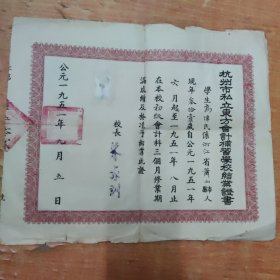 杭州市私立東方會計補習學校結業證書
學生 民係浙江省蕭山縣人
現年叁拾壹歲自公元一九五一年
六月起至一九五一年八月止
在本校初級會計科三個月修業期
滿成績及格准予結業此證
校長
公元一九五一年九月五日